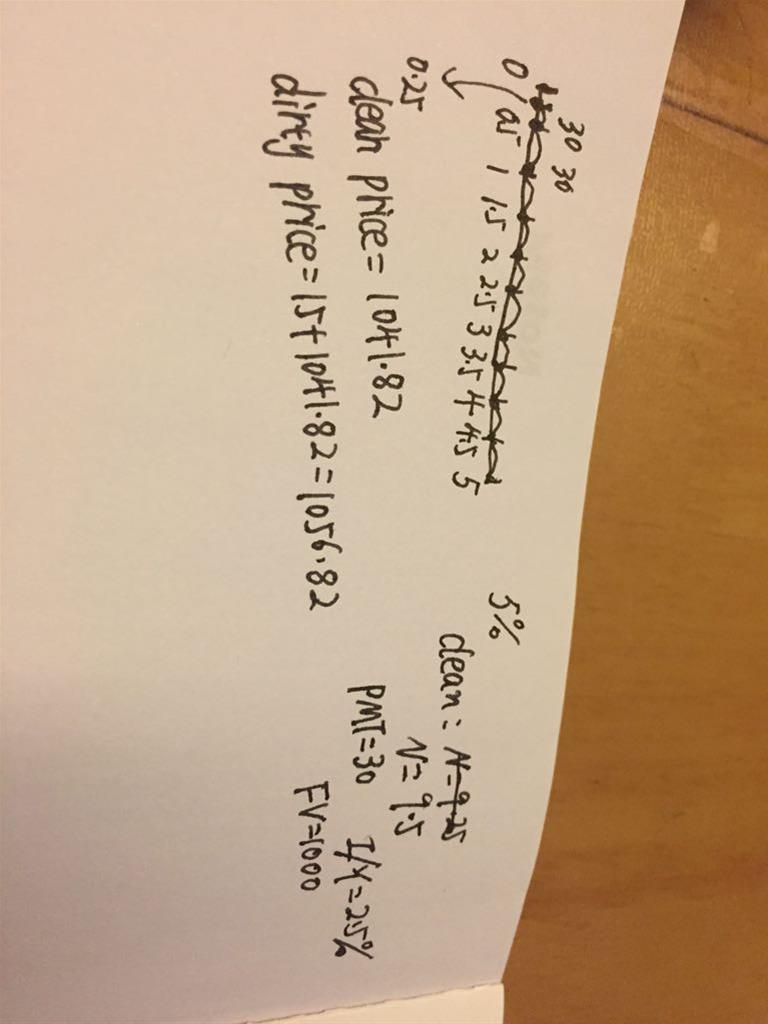 30 30
0 0.5 1 1.5 2 2.5 3 3.5 4 4.5 5
0.25
5%
clean: N=9.25
N=9.5
PMT=30 I/Y=2.5%
FV=1000
clean price=1041.82
dirty price=15+1041.82=1056.82